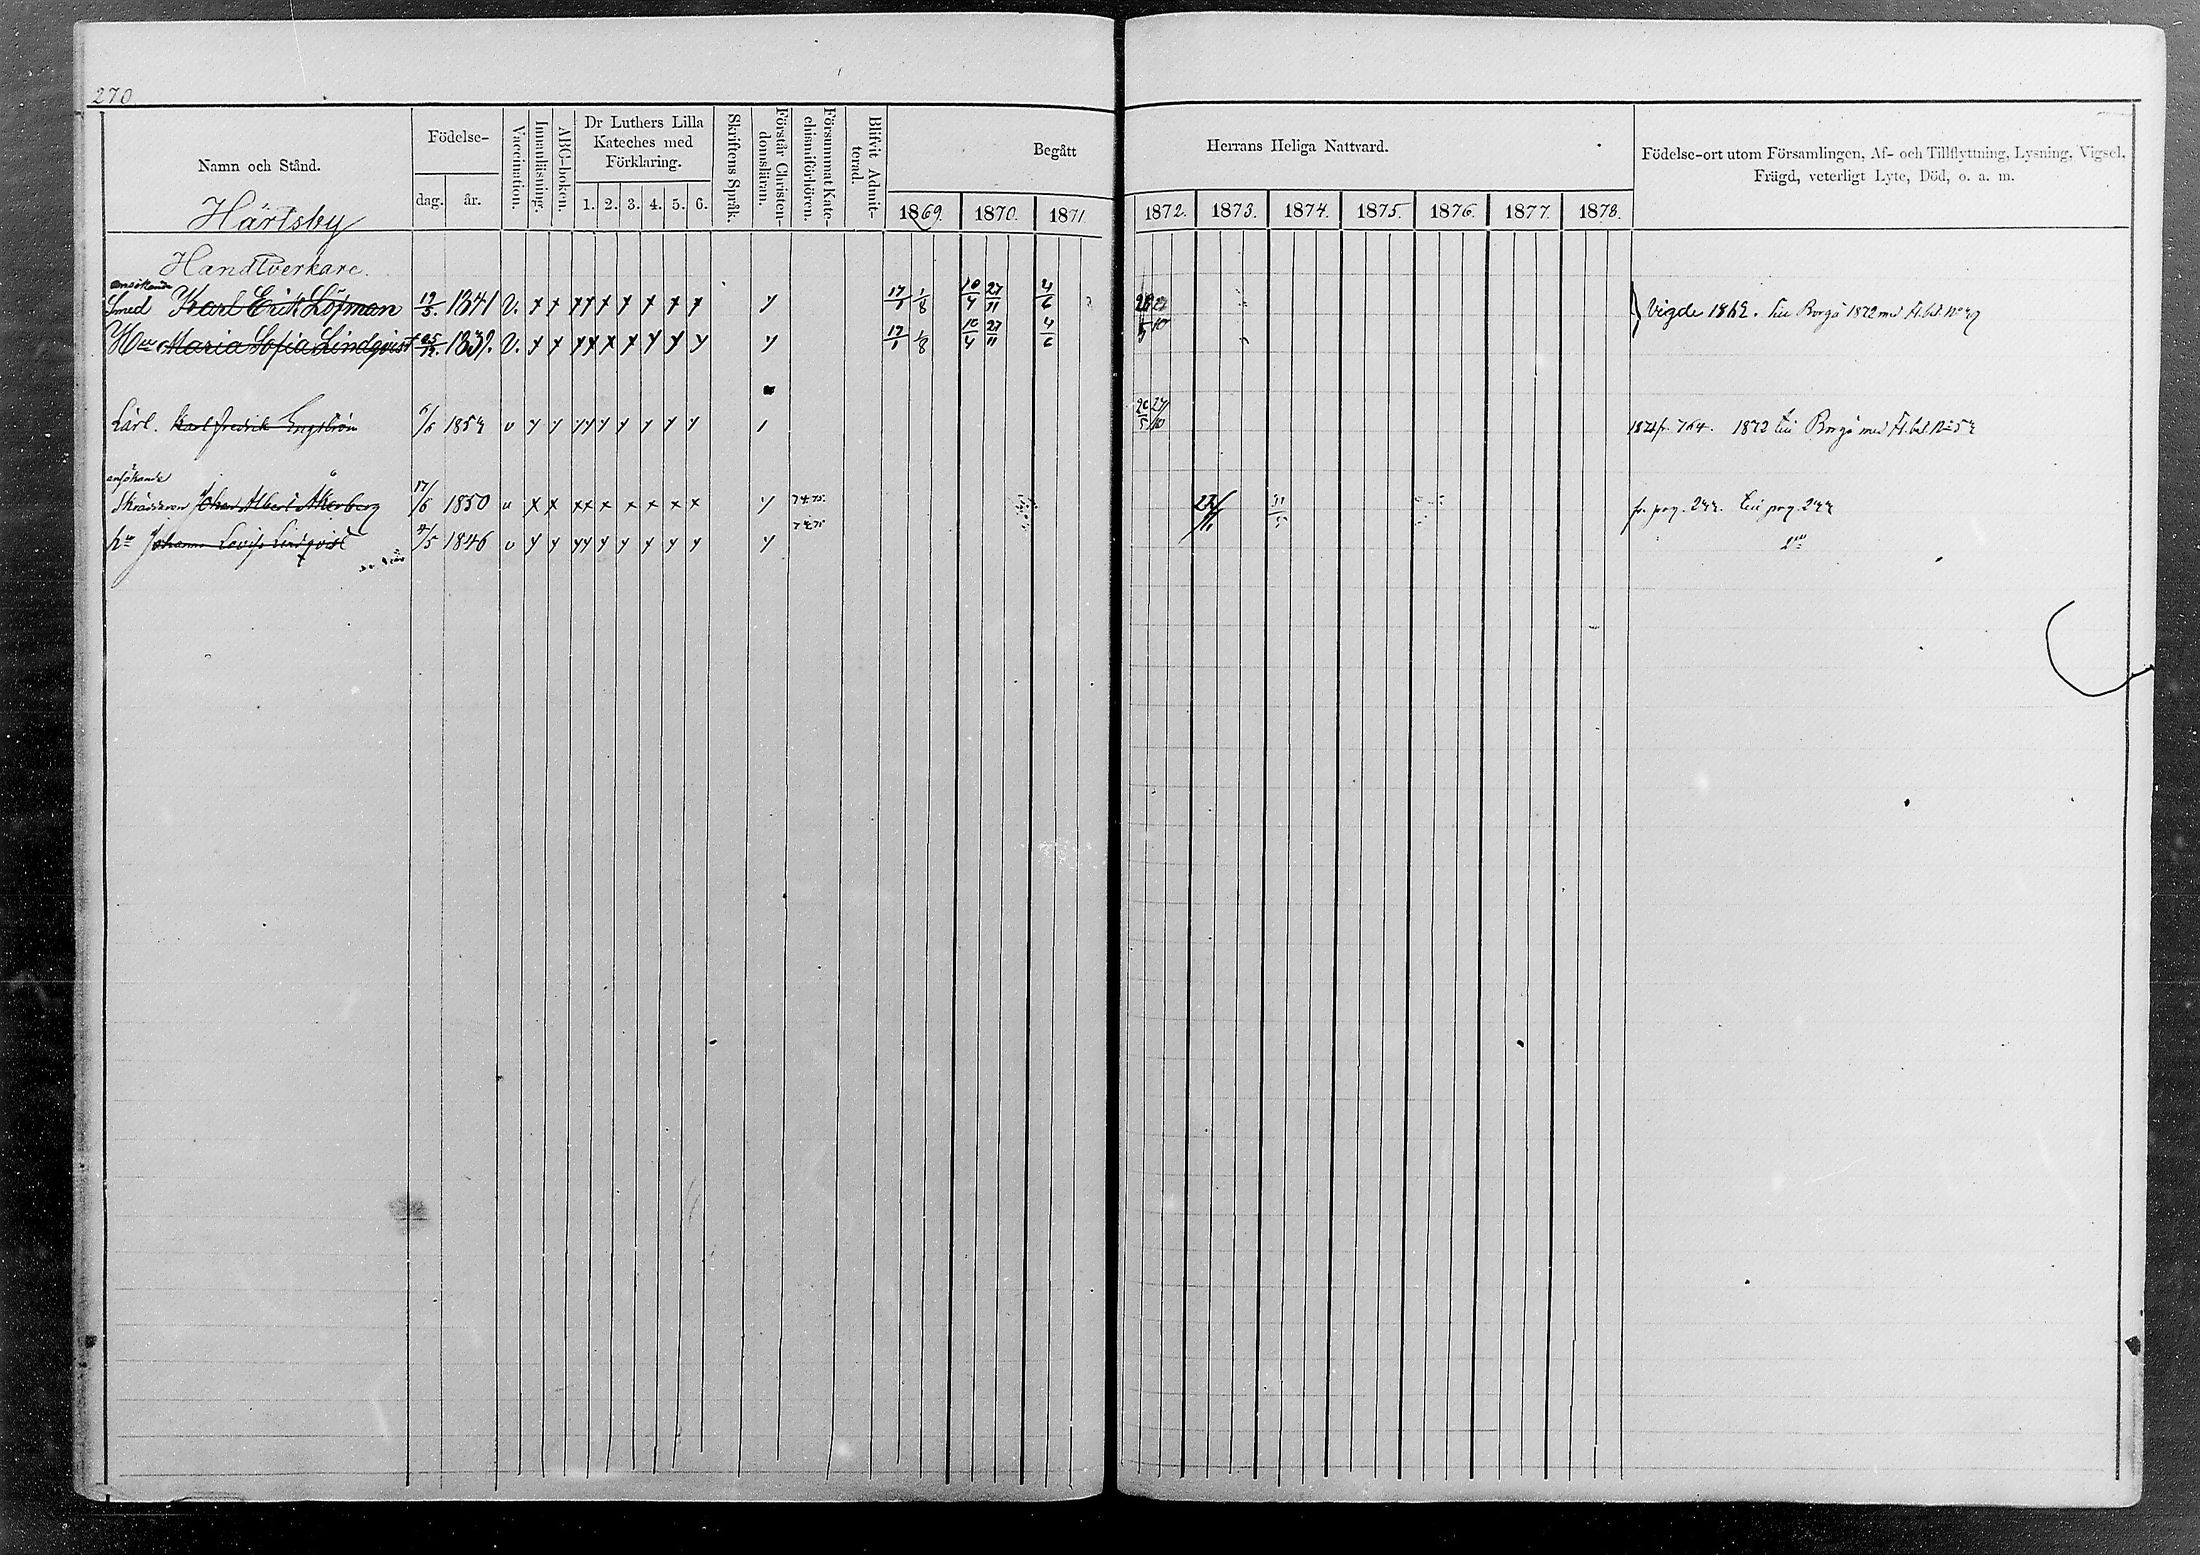 270
Namn och Stånd.
Födelse-
dag.
år.
Vaccination.
Innanläsning.
ABC-boken.
Dr Luthers Lilla
Kateches med
Förklaring.
1. 2. 3. 4. 5. 6.
Skriftens Språk.
Förstår Christen-
domsläran.
Försummat Kate-
chismiförhören.
Blifvit Admit-
terad.
Begått
Herrans Heliga Nattvard.
1869. 1870. 1871 1872. 1873. 1874. 1875. 1876. 1877. 1878.
Födelse-ort utom Församlingen, Af- och Tillflyttning, Lysning, Vigsel,
Frägd, veterligt Lyte, Död, o. a. m.
Härlsby
Handtverkare.
ansökande
Smed Karl Erik Löfman 19/5. 1841 V. 17/1 1/8 10/4 27/11 4/6 Vigde 1862. till Borgå 1872 med
Maria Sofia Lindqvist 1839. V. 17/1 1/8 10/4 27/11 4/6
Lärl. Karl Fredrik Engström 1854 v 20/5 27/10 1872 till Borgå med
ansökande
Skräddaren Johan Albert Åkerberg 17/6 1850 v 74.75. fr. pag. 244. till pag. 244
hu Johanna Lovisa Lindqvist 4/5 1846 v 74 75